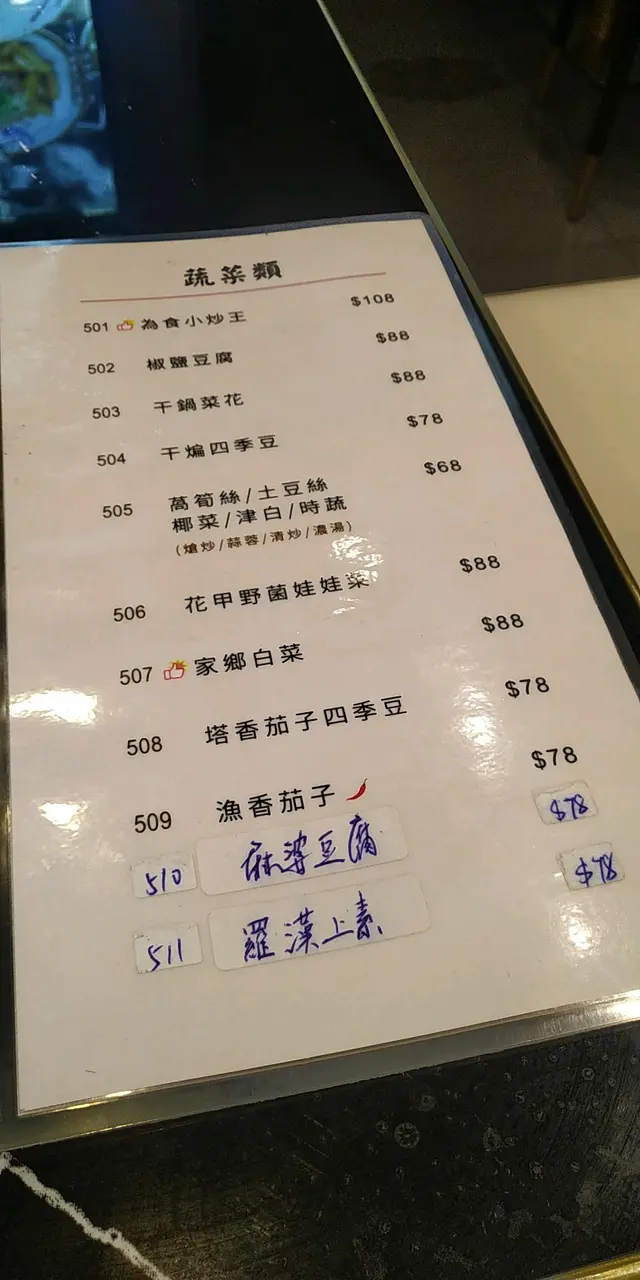 蔬菜類
501 為食小炒王 $108
502 椒鹽豆腐 $88
503 干鍋菜花 $88
504 干煸四季豆 $78
505 萵筍絲/土豆絲 $68
椰菜/津白/時蔬
(熗炒/蒜蓉/清炒/濃湯)
506 花甲野菌娃娃菜 $88
507 家鄉白菜 $88
508 塔香茄子四季豆 $78
509 漁香茄子 $78
510 麻婆豆腐 $78
511 羅漢上素 $78